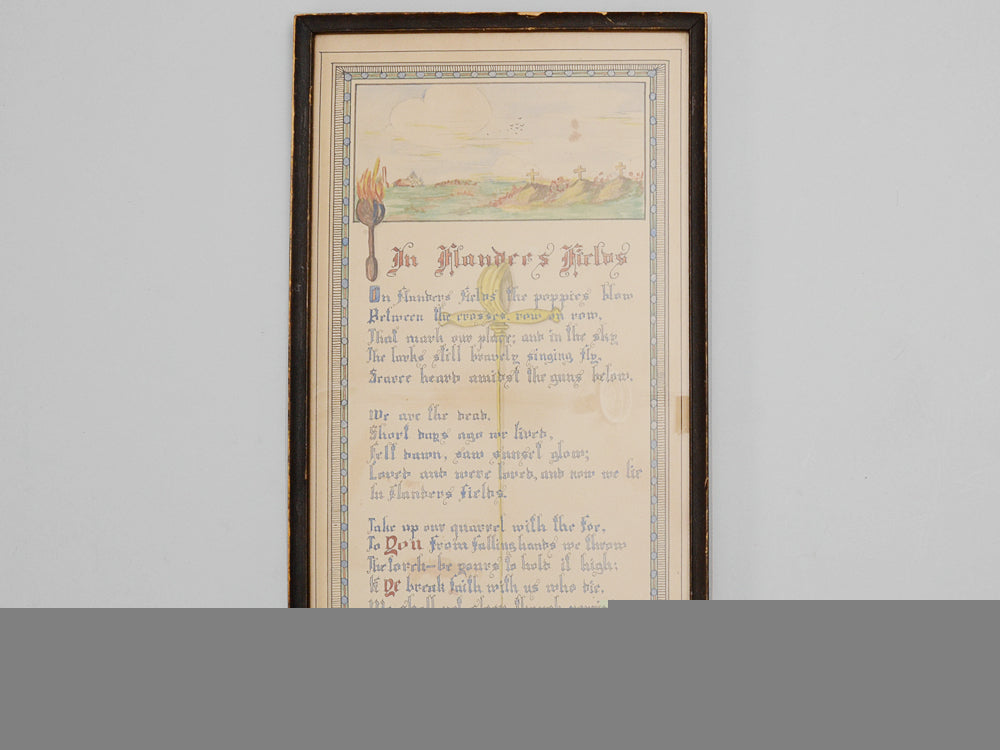 In Flanders Fields
In Flanders Fields the poppies blow
Between the crosses, row on row,
That mark our place; and in the sky
The larks still bravely singing fly,
Scarce heard amidst the guns below.
We are the dead,
Short days ago we lived,
Felt dawn, saw sunset glow;
Loved and were loved, and now we lie
In Flanders Fields.
Take up our quarrel with the foe,
To You from falling hands we throw
The torch—be yours to hold it high;
If ye break faith with us who die,
We shall not sleep though poppies